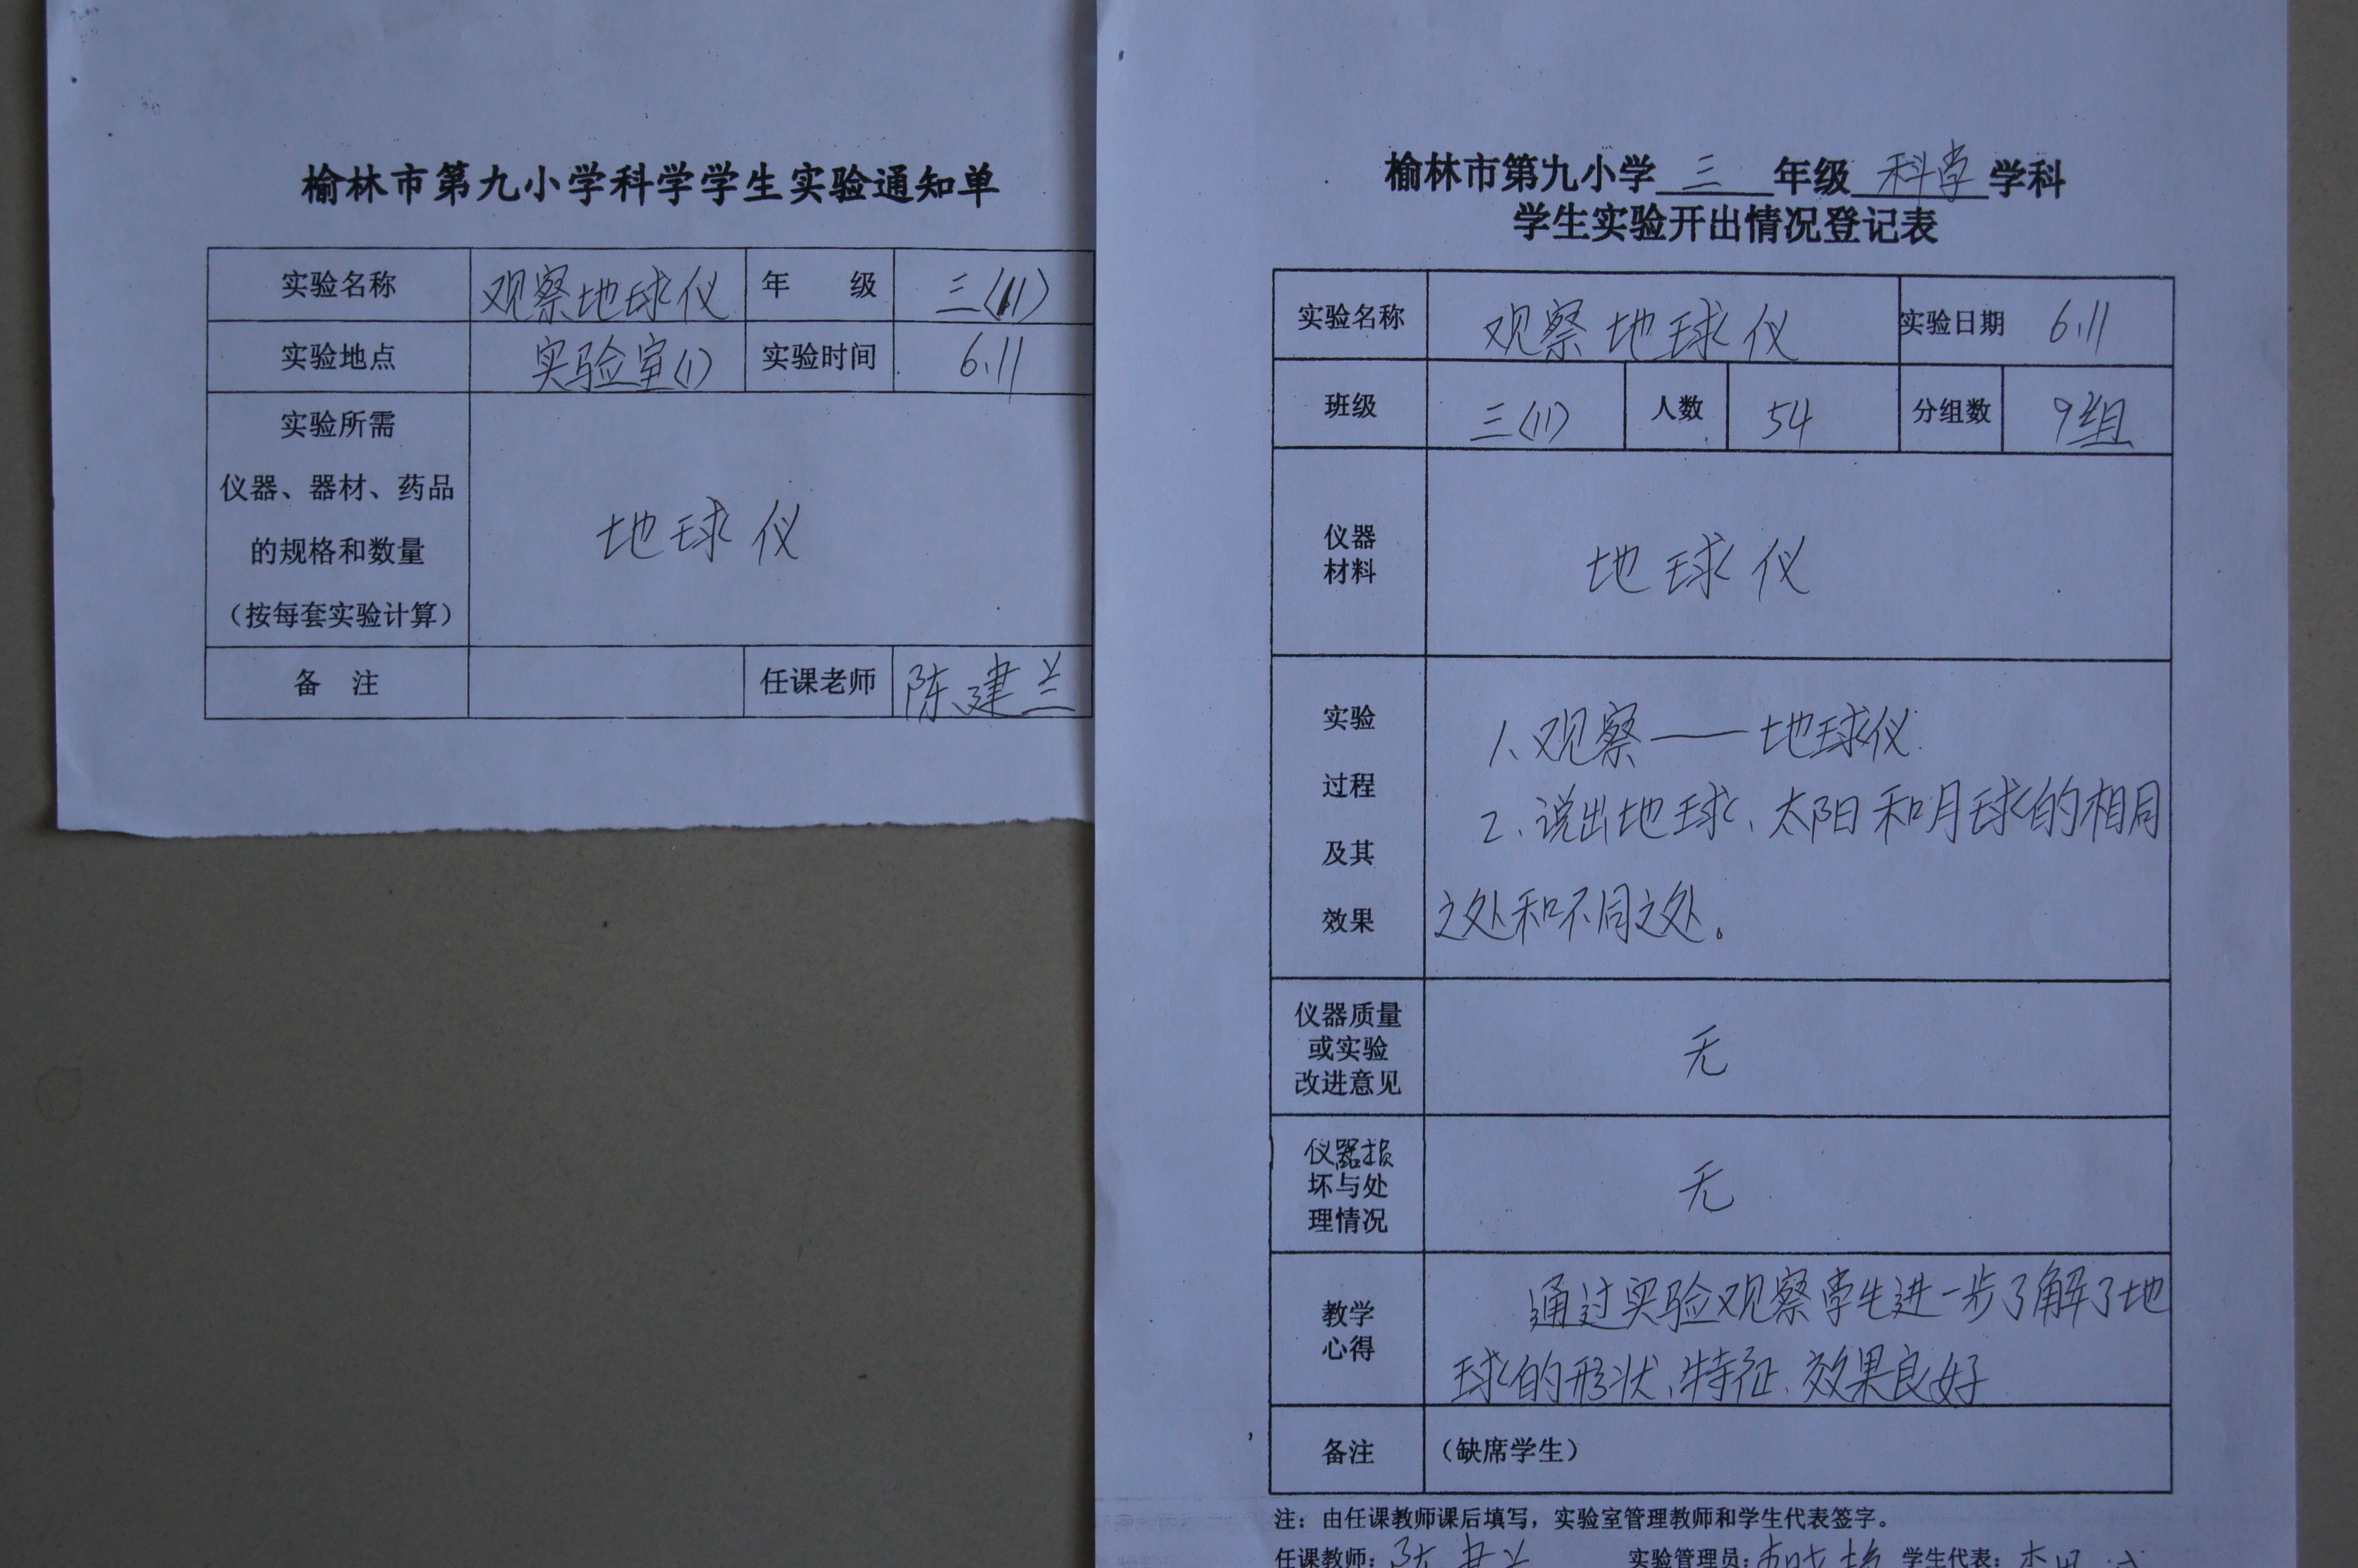 榆林市第九小学科学学生实验通知单
实验名称 观察地球仪 年 级 三(11)
实验地点 实验室(1) 实验时间 6.11
实验所需
仪器、器材、药品
的规格和数量
（按每套实验计算）
地球仪
备 注 任课老师 陈建兰
榆林市第九小学 三 年级 科学 学科
学生实验开出情况登记表
实验名称 观察地球仪 实验日期 6.11
班级 三(11) 人数 54 分组数 9组
仪器
材料
地球仪
实验
过程
及其
效果
1、观察——地球仪
2、说出地球、太阳和月球的相同
之处和不同之处。
仪器质量
或实验
改进意见
无
仪器损
坏与处
理情况
无
教学
心得
通过实验观察学生进一步了解了地
球的形状、特征、效果良好
备注 （缺席学生）
注：由任课教师课后填写，实验室管理教师和学生代表签字。
任课教师：陈建兰 实验管理员： 学生代表：